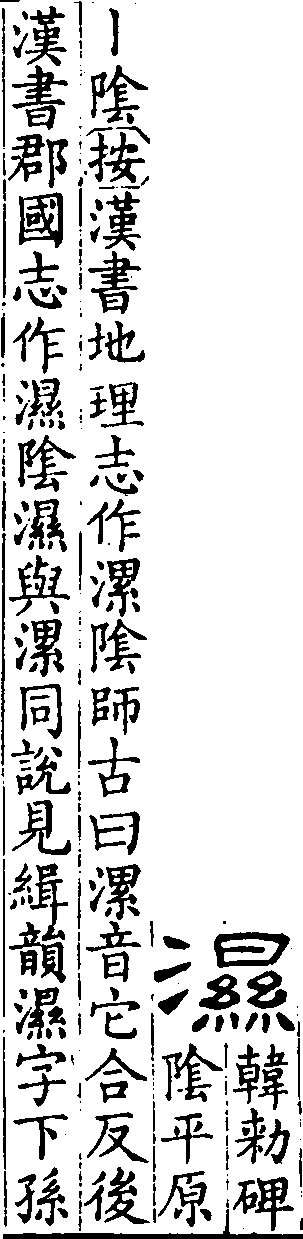 濕
韓勑碑
陰平原
丨陰按漢書地理志作漯陰師古曰漯音它合反後
漢書郡國志作濕陰濕與漯同說見緝韻濕字下孫